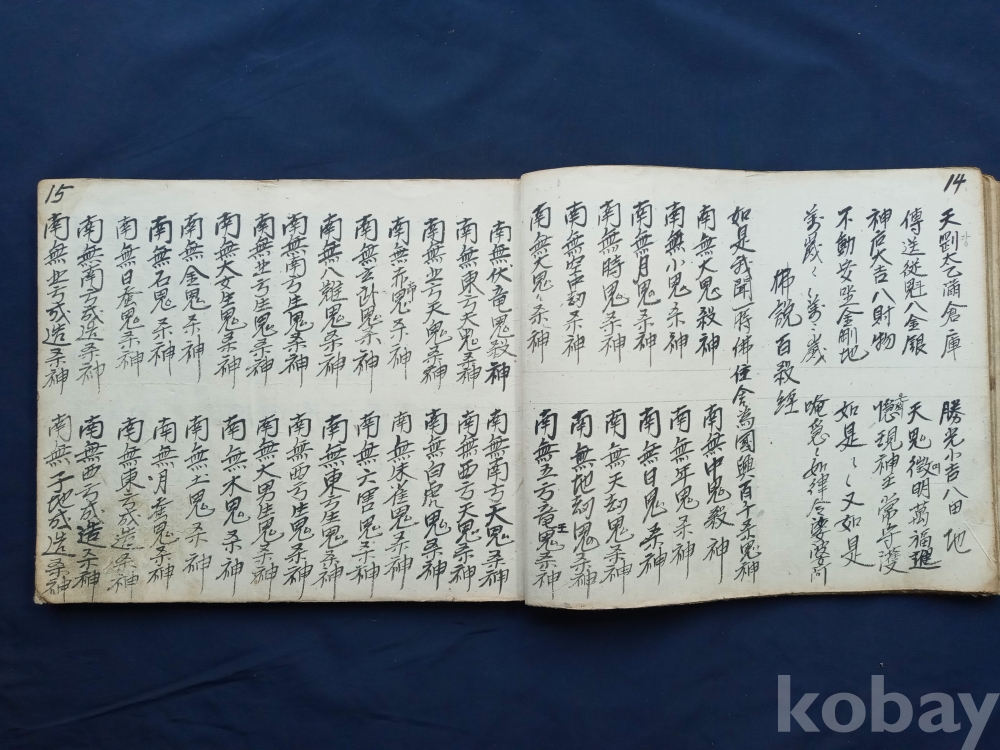 14
天劉太乙涌倉庫 勝光小吉八田地
傳送從魁八金銀 天魁徵明萬福進
神后大吉八財物 隱現神王常守護
不動安坐金剛地 如是〻又如是
萬歲〻萬〻歲 唵急〻如律令娑婆訶
佛說百殺經
如是我聞一時佛住舍為國與百千杀鬼神
南無大鬼殺神 南無中鬼殺神
南無小鬼杀神 南無年鬼杀神
南無月鬼杀神 南無日鬼杀神
南無時鬼杀神 南無天刧鬼杀神
南無空中刧杀神 南無地刧鬼杀神
南無天鬼〻杀神 南無五方竜王鬼杀神
15
南無伏竜鬼殺神 南無南方天鬼杀神
南無東方天鬼杀神 南無西方天鬼杀神
南無北方天鬼杀神 南無白虎鬼杀神
南無赤鬼杀神 南無朱雀鬼杀神
南無玄武鬼杀神 南無六害鬼杀神
南無八難鬼杀神 南無東方生鬼杀神
南無南方生鬼杀神 南無西方生鬼杀神
南無北方生鬼杀神 南無大男生鬼杀神
南無大女生鬼杀神 南無木鬼杀神
南無金鬼杀神 南無土鬼杀神
南無石鬼杀神 南無月奎鬼杀神
南無日奎鬼杀神 南無東方成造杀神
南無南方成造杀神 南無西方成造杀神
南無北方成造杀神 南無子地成造杀神
kobay